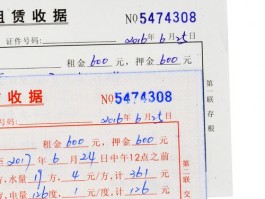 租赁收据 NO 5474308
证件号码: 2016年6月25日
租金 600 元, 押金 600 元.
第一联存根
收据 NO 5474308
2016年6月25日
租金 600 元, 押金 600 元.
至 2017 年 6 月 24 日中午12点之前
水量 19 方, 4 元/方 计 361
电量 126 度, 1 元/度, 计 126
第二联交